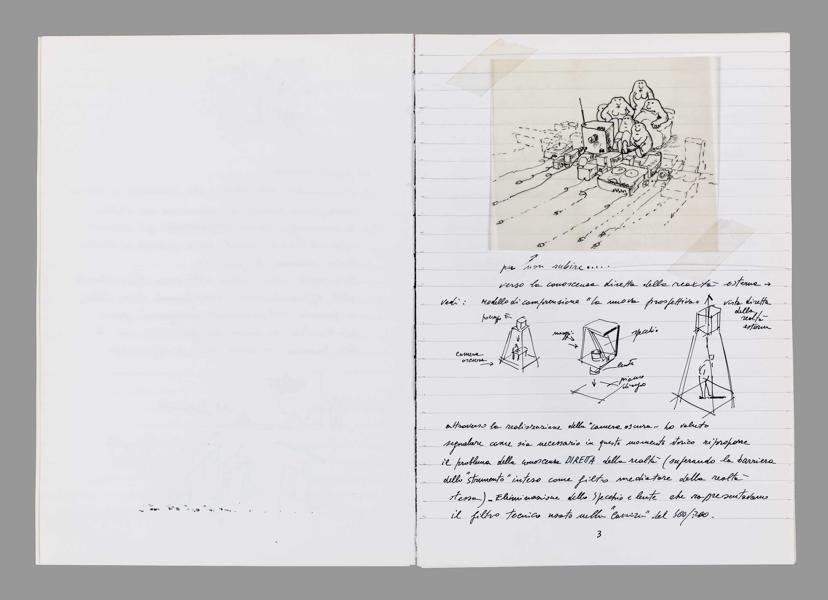 per non subire.....
verso la conoscenza diretta della realtà esterna →
vedi: Modello di comprensione "la nuova prospettiva"
vista diretta
della
realtà
esterna
camera
oscura
raggi
specchio
lente
piano
attraverso la realizzazione della "camera oscura" ho voluto
segnalare come sia necessario in questo momento storico riproporre
il problema della conoscenza DIRETTA della realtà (superando la barriera
dello "strumento" inteso come filtro mediatore della realtà
stessa) - Eliminazione dello specchio e lente che rappresentavano
il filtro tecnico usato nella "camera" del
3